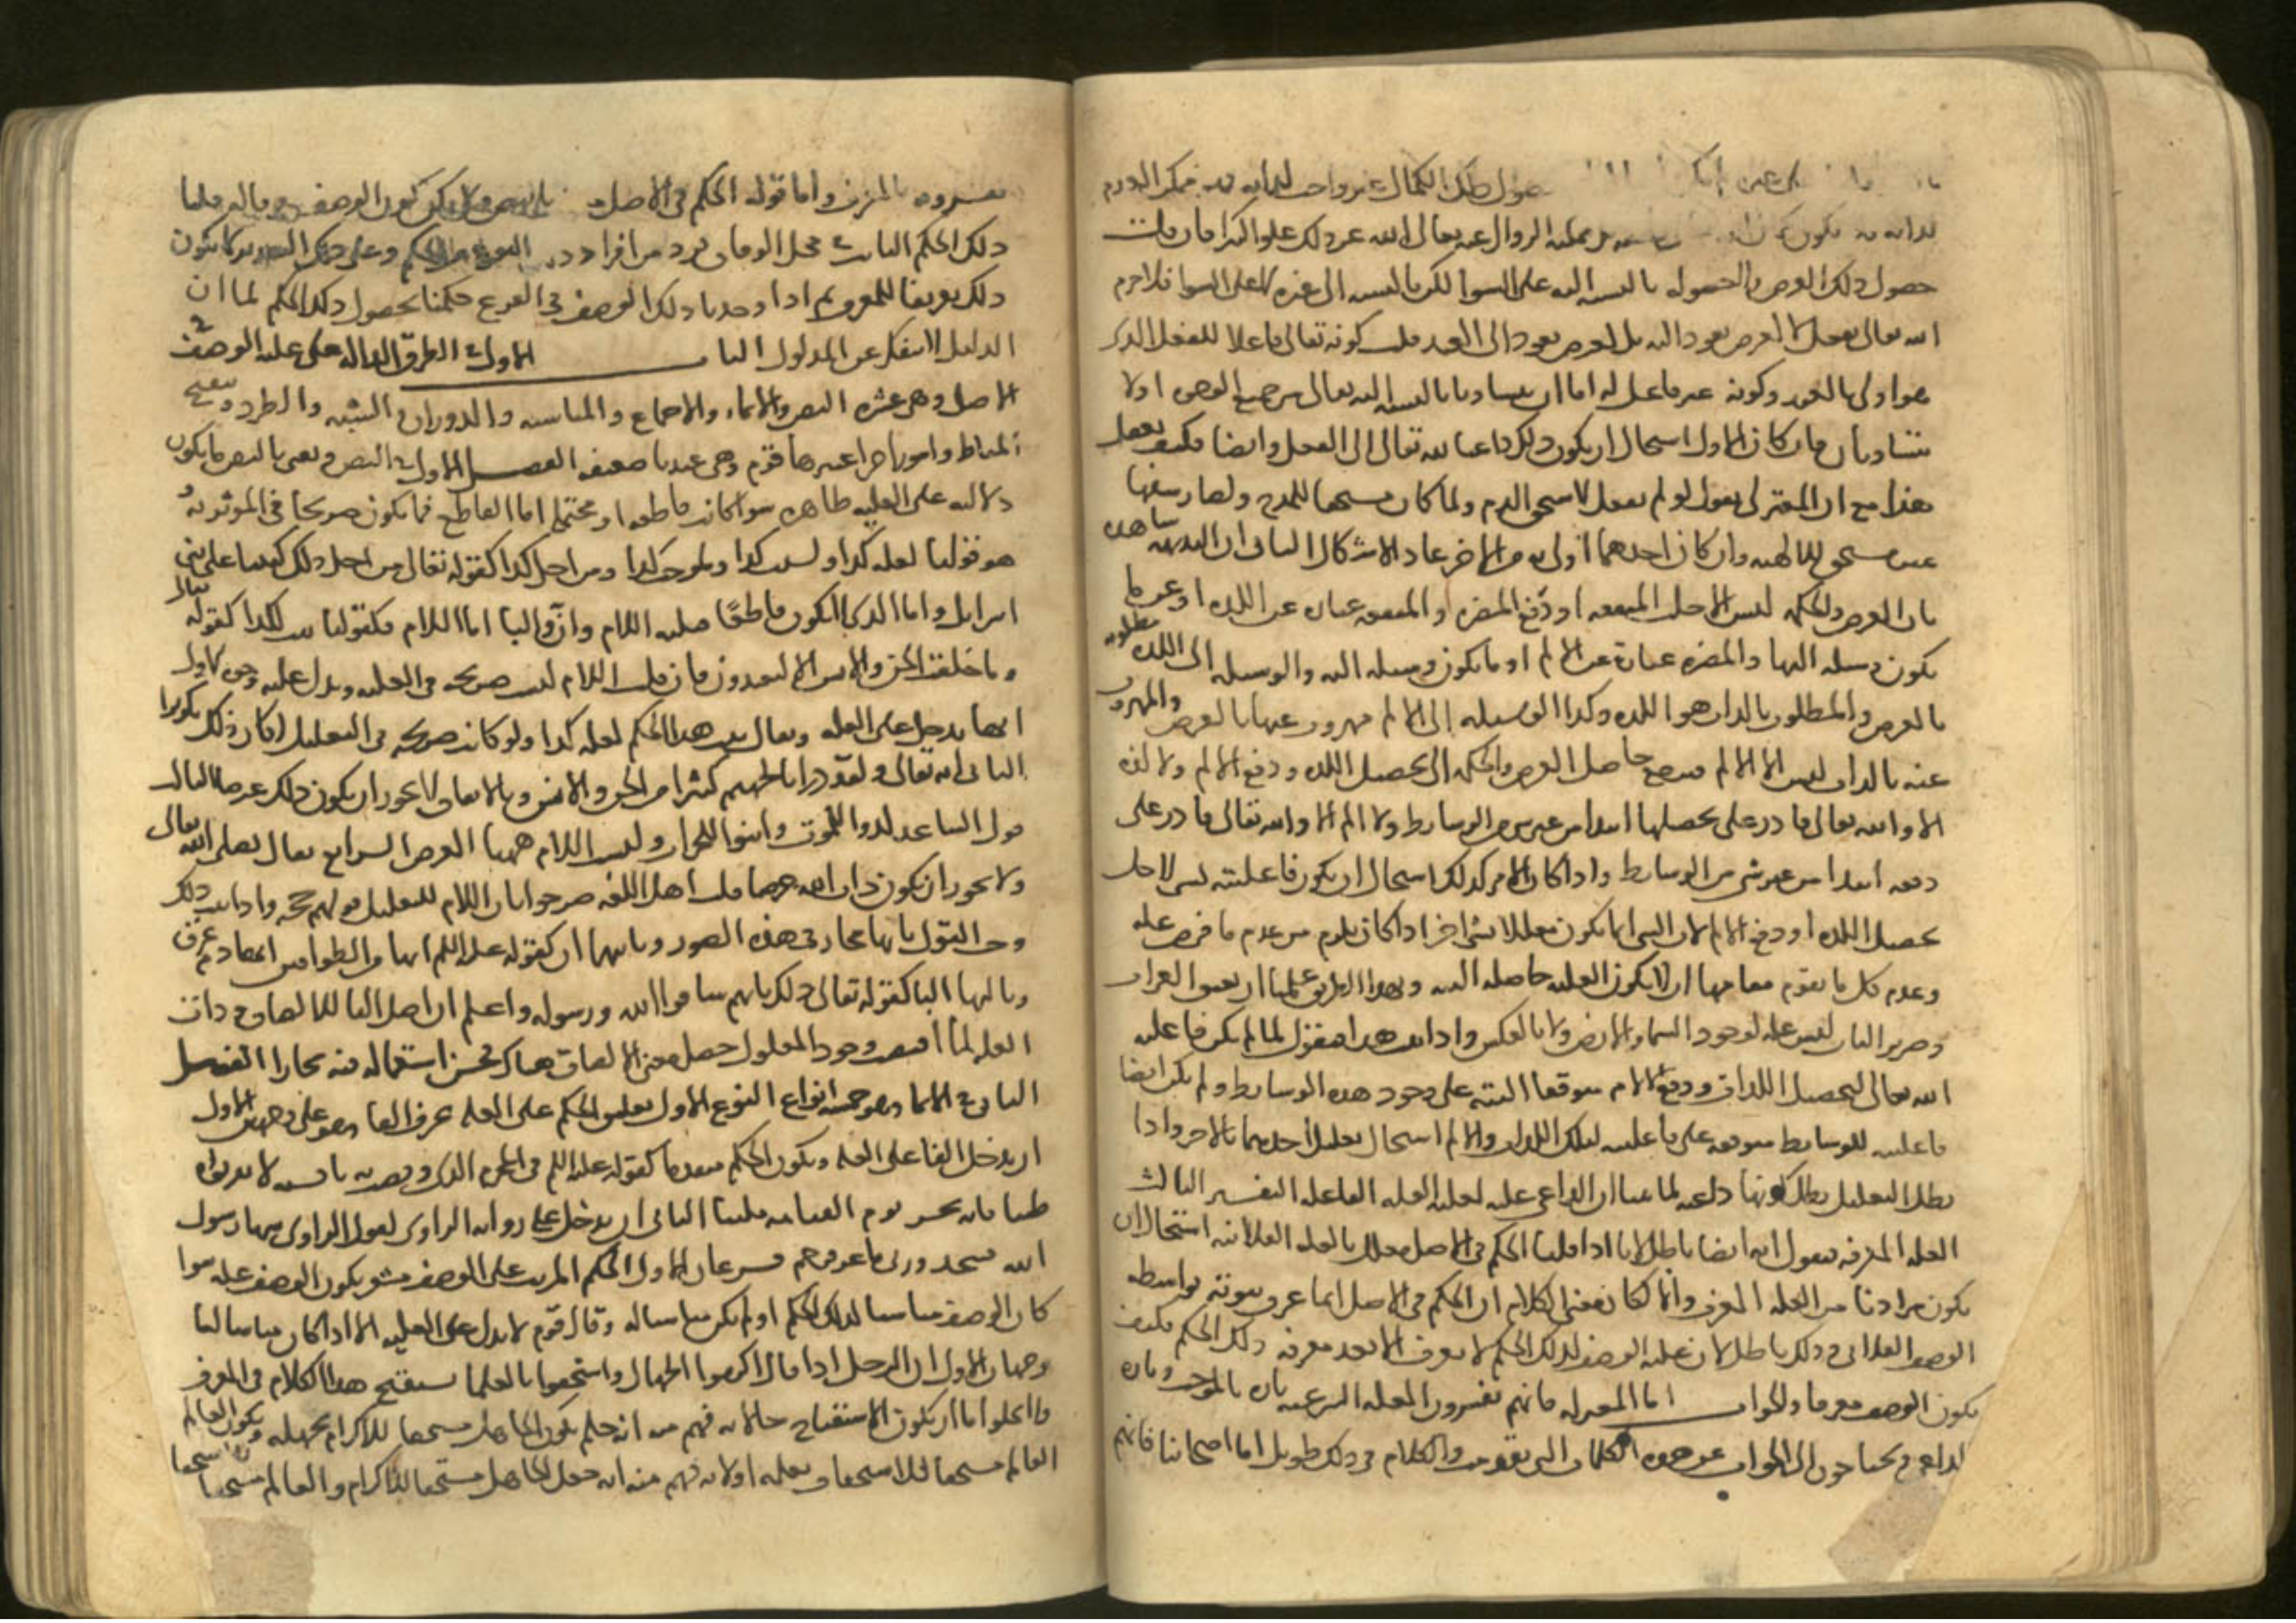 حصول ذلك الكمال غير واجب لذاته فهو ممكن العدم
لذاته فلا يكون كمال الله تعالى صفة واجبة بل ممكنة الزوال عنه تعالى الله عن ذلك علوا كبيرا فان قلت
حصول ذلك الغرض ولا حصوله بالنسبة اليه على السوا لكن بالنسبة الى غيره لا على السوا فلا جرم
الله تعالى يفعل لا لغرض يعود اليه بل لغرض يعود الى العبد قلت كونه تعالى فاعلا للفعل الذي
هو اولى بالعبد وكونه غير فاعل له اما ان يتساويا بالنسبة اليه تعالى من جميع الوجوه او لا
يتساويان فان كان الاول استحال ان يكون ذلك داعيا لله تعالى الى الفعل وايضا فكيف يعقل
هذا مع ان المعتزلي يقول لو لم يفعل لاستحق الذم ولما كان مستحقا للمدح ولصار سفيها
غير مستحق للالهية وان كان احدهما اولى به من الاخر عاد الاشكال الثاني ان البديهة شاهدة
بان الغرض والحكمة ليس الا جلب المنفعة او دفع المضرة والمنفعة عبارة عن اللذة او عن ما
يكون وسيلة اليها والمضرة عبارة عن الالم او ما يكون وسيلة اليه والوسيلة الى اللذة مطلوبة
بالعرض والمطلوب بالذات هو اللذة وكذا الوسيلة الى الالم مهروب عنها بالعرض والمهروب
عنه بالذات ليس الا الالم فيرجع حاصل الغرض والحكمة الى تحصيل اللذة ودفع الالم ولا لذة
الا والله تعالى قادر على تحصيلها ابتدا من غير شي من الوسايط ولا الم الا والله تعالى قادر على
دفعه ابتدا من غير شي من الوسايط واذا كان الامر كذلك استحال ان يكون فاعليته لشي لاجل
تحصيل اللذة او دفع الالم لان الشي انما يكون معللا بشي اخر اذا كان يلزم من عدم ما فرض علة
وعدم كل ما يقوم مقامها ان لا يكون العلية حاصلة البتة وبهذا الطريق علمنا ان نعيق الغراب
وصرير الباب ليس علة لوجود السما والارض ولا بالعكس واذا ثبت هذا فنقول لما لم يكن فاعلية
الله تعالى لتحصيل اللذات ودفع الالام متوقفا البتة على وجود هذه الوسايط ولم يكن ايضا
فاعليته للوسايط متوقفة على فاعليته لتلك اللذات والالم استحال تعليل احدهما بالاخر واذا
بطل التعليل بطل كونها داعية لما بينا ان الداعي علة لعلية العلة الفاعلة التفسير الثالث
العلة المعرفة فنقول انه ايضا باطل لانا اذا قلنا الحكم في الاصل معلل بالعلة الفلانية استحال ان
يكون مرادنا من العلة المعرف والا لكان معنى الكلام ان الحكم في الاصل انما عرف ثبوته بواسطة
الوصف الفلاني وذلك باطل لان علية الوصف لذلك الحكم لا يعرف الا بعد معرفة ذلك الحكم فكيف
يكون الوصف معرفا والجواب اما المعتزلة فانهم يفسرون العلة الشرعية تارة بالموجب وتارة
بالداعي ويحتاجون الى الجواب عن هذه الكلمات التي تقدمت والكلام في ذلك طويل اما اصحابنا فانهم
يفسرونه بالمعرف واما قوله الحكم في الاصل معرف بالنص فلا يمكن كون الوصف معرفا له قلنا
ذلك الحكم الثابت في محل الوفاق فرد من افراد ذلك النوع من الحكم وعلى هذا التقدير لا يكون
ذلك تعريفا للمعرف ثم اذا وجدنا ذلك الوصف في الفرع حكمنا بحصول ذلك الحكم لما ان
الدليل لا ينفك عن المدلول الباب الاول في الطرق الدالة على علية الوصف في
الاصل وهي عشرة النص والايماء والاجماع والمناسبة والدوران والشبه والطرد وتنقيح
المناط وامور اخر اعتبرها قوم وهي عندنا ضعيفة الفصل الاول في النص ونعني بالنص ما يكون
دلالته على العلية ظاهرة سوا كانت قاطعة او محتملة اما القاطع فما يكون صريحا في المؤثرية
هو قولنا لعلة كذا او لسبب كذا او لموجب كذا او من اجل كذا كقوله تعالى من اجل ذلك كتبنا على بني
اسرايل واما الذي لا يكون قاطعا فثلثة اللام وان والبا اما اللام فكقولنا ثبت لكذا كقوله تعالى
وما خلقت الجن والانس الا ليعبدون فان قلت اللام ليست صريحة في العلية ويدل عليه وجوه الاول
انها تدخل على العلة ويقال ثبت هذا الحكم لعلة كذا ولو كانت صريحة في التعليل لكان ذلك تكريرا
الثاني انه تعالى قال ولقد ذرانا لجهنم كثيرا من الجن والانس وبالاتفاق لا يجوز ان يكون ذلك غرضا الثالث
قول الشاعر لدوا للموت وابنوا للخراب وليست اللام ههنا للغرض الرابع يقال نصلي لله تعالى
ولا يجوز ان يكون ذات الله غرضا قلت اهل اللغة صرحوا بان اللام للتعليل وقولهم حجة واذا ثبت ذلك
وجب القول بانها مجاز في هذه الصور وثانيها ان كقوله عليه السلم انها من الطوافين عليكم
وثالثها البا كقوله تعالى ذلك بانهم شاقوا الله ورسوله واعلم ان اصل البا للالصاق وذات
العلة لما اقتضت وجود المعلول حصل معنى الالصاق هناك فحسن استعماله فيه مجازا الفصل
الثاني في الايما وهو خمسة انواع النوع الاول تعليق الحكم على العلة بحرف الفا وهو على وجهين الاول
ان يدخل الفا على العلة ويكون الحكم متقدما كقوله عليه السلم في المحرم الذي وقصت به ناقته لا تقربوه
طيبا فانه يحشر يوم القيامة ملبيا الثاني ان يدخل على رواية الراوي كقول الراوي سها رسول
الله فسجد وزنى ماعز فرجم فرعان الاول الحكم المرتب على الوصف مشعر بكون الوصف علة سوا
كان الوصف مناسبا لذلك الحكم او لم يكن مناسبا له وقال قوم لا يدل على العلية الا اذا كان مناسبا لنا
وجهان الاول ان الرجل اذا قال اكرموا الجهال واستخفوا بالعلما يستقبح هذا الكلام في العرف
ولا يخلوا اما ان يكون الاستقباح جا لانه فهم منه انه حكم بكون الجاهل مستحقا للاكرام بجهله وبكون العالم
العالم مستحقا للاستخفاف بعلمه او لانه فهم منه انه جعل الجاهل مستحقا للاكرام والعالم مستحقا